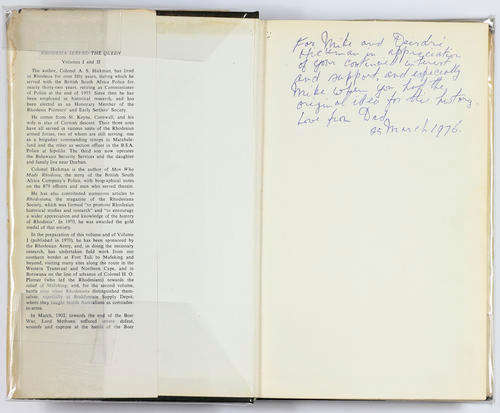 RHODESIA SERVED THE QUEEN
Volumes I and II
The author, Colonel A. S. Hickman, has lived
in Rhodesia for over fifty years, during which he
served with the British South Africa Police for
nearly thirty-two years, retiring as Commissioner
of Police at the end of 1955. Since then he has
been employed in historical research, and has
been elected as an Honorary Member of the
Rhodesia Pioneers' and Early Settlers' Society.
He comes from St. Keyne, Cornwall, and his
wife is also of Cornish descent. Their three sons
have all served in various units of the Rhodesian
armed forces, two of whom are still serving, one
as a brigadier commanding troops in Matabele-
land and the other as section officer in the B.S.A.
Police at Sipolilo. The third son now operates
the Bulawayo Security Services and the daughter
and family live near Durban.
Colonel Hickman is the author of Men Who
Made Rhodesia, the story of the British South
Africa Company's Police, with biographical notes
on the 879 officers and men who served therein.
He has also contributed numerous articles to
Rhodesiana, the magazine of the Rhodesiana
Society, which was formed "to promote Rhodesian
historical studies and research" and "to encourage
a wider appreciation and knowledge of the history
of Rhodesia". In 1970, he was awarded the gold
medal of that society.
In the preparation of this volume and of Volume
I (published in 1970), he has been sponsored by
the Rhodesian Army, and, in doing the necessary
research, has undertaken field work from our
southern border at Fort Tuli to Mafeking and
beyond, visiting many sites along the route in the
Western Transvaal and Northern Cape, and in
Botswana on the line of advance of Colonel H. O.
Plumer (who led the Rhodesians) towards the
relief of Mafeking; and, for the second volume,
battle sites where Rhodesians distinguished them-
selves, especially at Brakfontein Supply Depot,
where they fought beside Australians as comrades
in arms.
In March, 1902, towards the end of the Boer
War, Lord Methuen suffered severe defeat,
wounds and capture at the hands of the Boer
For Mike and Deirdre
Hickman in appreciation
of your continued interest
and support, and especially
Mike when you had the
original idea for this history.
Love from Dad,
March 1976.